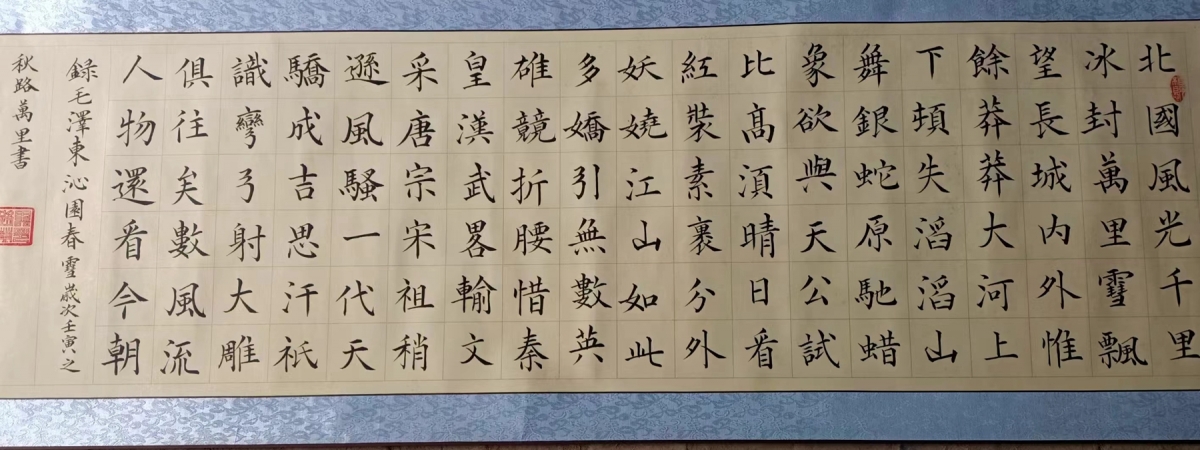 北國風光千里
冰封萬里雪飄
望長城内外惟
餘莽莽大河上
下頓失滔滔山
舞銀蛇原馳蜡
象欲與天公試
比髙須晴日看
紅裝素裹分外
妖嬈江山如此
多嬌引無數英
雄競折腰惜秦
皇漢武畧輸文
采唐宗宋祖稍
遜風騷一代天
驕成吉思汗祇
識彎弓射大雕
俱往矣數風流
人物還看今朝
録毛澤東沁園春雪歲次壬寅之
秋路萬里書